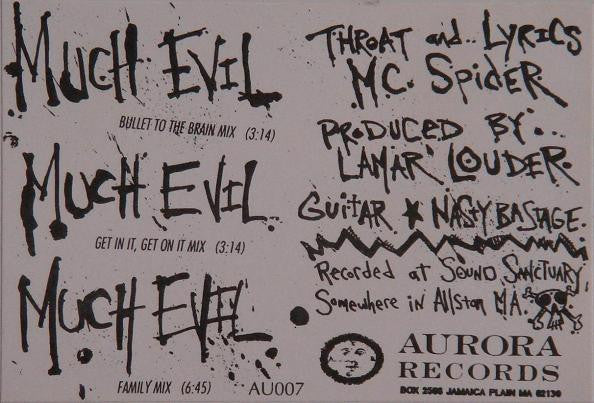 MUCH EVIL
BULLET TO THE BRAIN MIX (3:14)
MUCH EVIL
GET IN IT, GET ON IT MIX (3:14)
MUCH EVIL
FAMILY MIX (6:45) AU007
THROAT and.. LYRICS
M.C. SPIDER
PRODUCED BY...
LAMAR LOUDER.
GUITAR ★ NASTY BASTAGE.
Recorded at SOUND SANCTUARY,
Somewhere in Allston MA.
AURORA
RECORDS
BOX 2565 JAMAICA PLAIN MA 02130